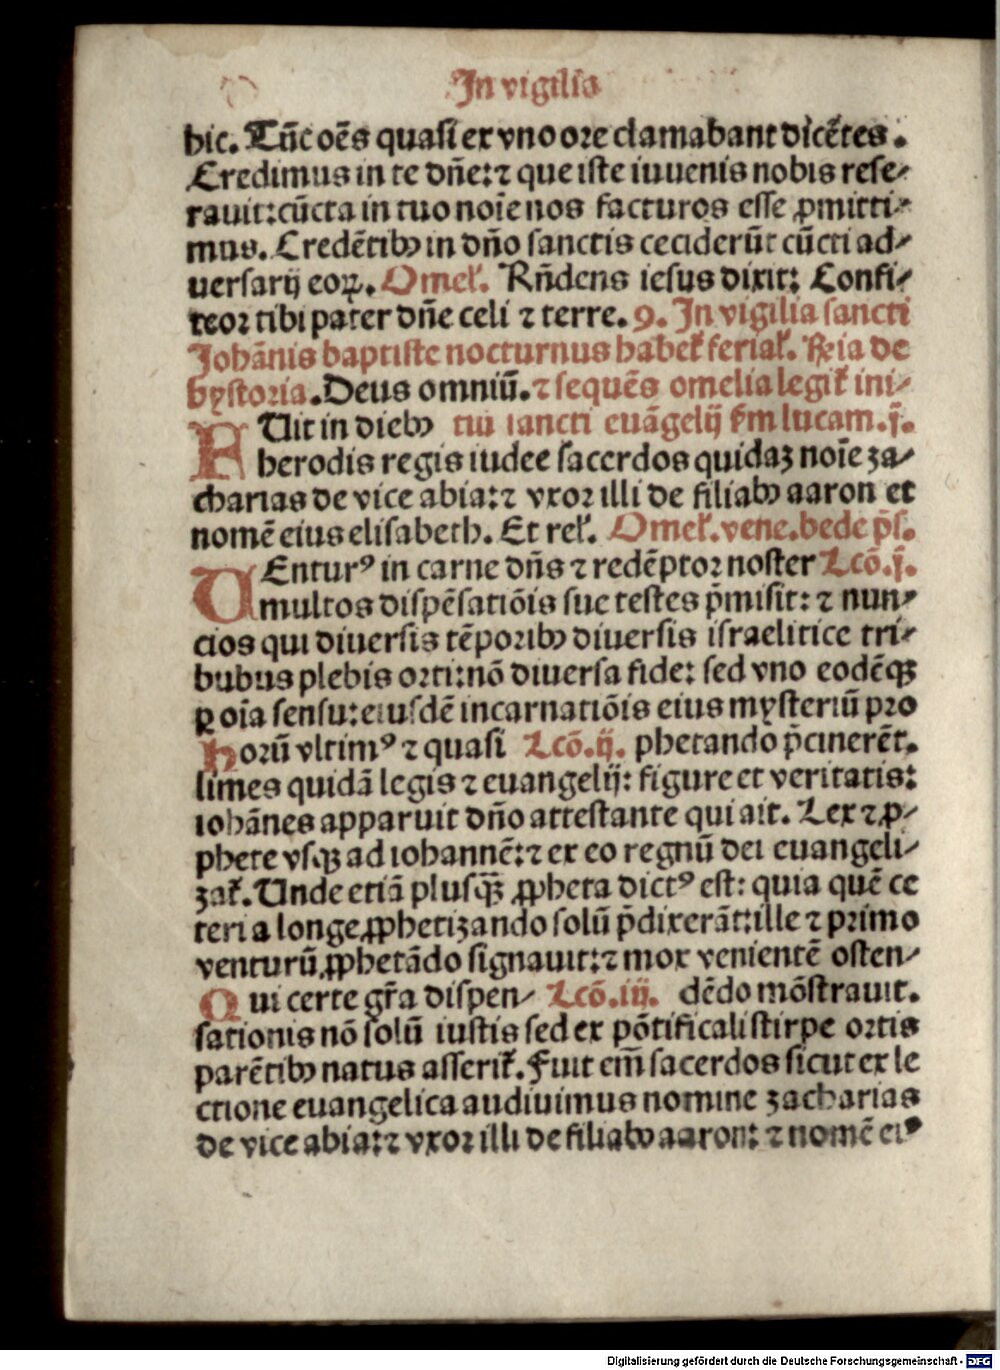 In vigilia
hic. Tūc oēs quasi ex vno ore clamabant dicētes.
Credimus in te dn̄e: ⁊ que iste iuuenis nobis rese⸗
rauit: cūcta in tuo noīe nos facturos esse ꝓmitti⸗
mus. Credētibꝰ in dn̄o sanctis ceciderūt cūcti ad⸗
uersarij eoꝝ. Omel̄. Rn̄dens iesus dixit: Confi⸗
teor tibi pater dn̄e celi ⁊ terre. 9. In vigilia sancti
Johānis baptiste nocturnus habet᷑ ferial̄. Rn̄ia de
hystoria. Deus omniū. ⁊ sequēs omelia legit᷑ ini⸗
FUit in diebꝰ tiū sancti euāgelij s̄m lucam. j.
herodis regis iudee sacerdos quidaꝫ noīe za⸗
charias de vice abia: ⁊ vxor illi de filiabꝰ aaron et
nomē eius elisabeth. Et rel̄. Omel̄. vene. bede p̄s.
UEnturꝰ in carne dn̄s ⁊ redēptor noster Lcō. j.
multos dispēsatiōis sue testes p̄misit: ⁊ nun⸗
cios qui diuersis tēporibꝰ diuersis israelitice tri⸗
bubus plebis orti: nō diuersa fide: sed vno eodēqꝫ
ꝑ oīa sensu: eiusdē incarnatiōis eius mysteriū pro
horū vltimꝰ ⁊ quasi Lcō. ij. phetando p̄cinerēt.
limes quidā legis ⁊ euangelij: figure et veritatis:
iohānes apparuit dn̄o attestante qui ait. Lex ⁊ ꝓ⸗
phete vsqꝫ ad iohannē: ⁊ ex eo regnū dei euangeli⸗
zat᷑. Unde etiā plusqꝫ̄ ꝓpheta dictꝰ est: quia quē ce
teri a longe ꝓphetizando solū p̄dixerāt: ille ⁊ primo
venturū ꝓphetādo signauit: ⁊ mox venientē osten⸗
Qui certe gr̄a dispen⸗ Lcō. iij. dēdo mōstrauit.
sationis nō solū iustis sed ex pōtificali stirpe ortis
parētibꝰ natus asserit᷑. Fuit em̄ sacerdos sicut ex le
ctione euangelica audiuimus nomine zacharias
de vice abia: ⁊ vxor illi de filiabꝰ aaron: ⁊ nomē eiꝰ
Digitalisierung gefördert durch die Deutsche Forschungsgemeinschaft - DFG